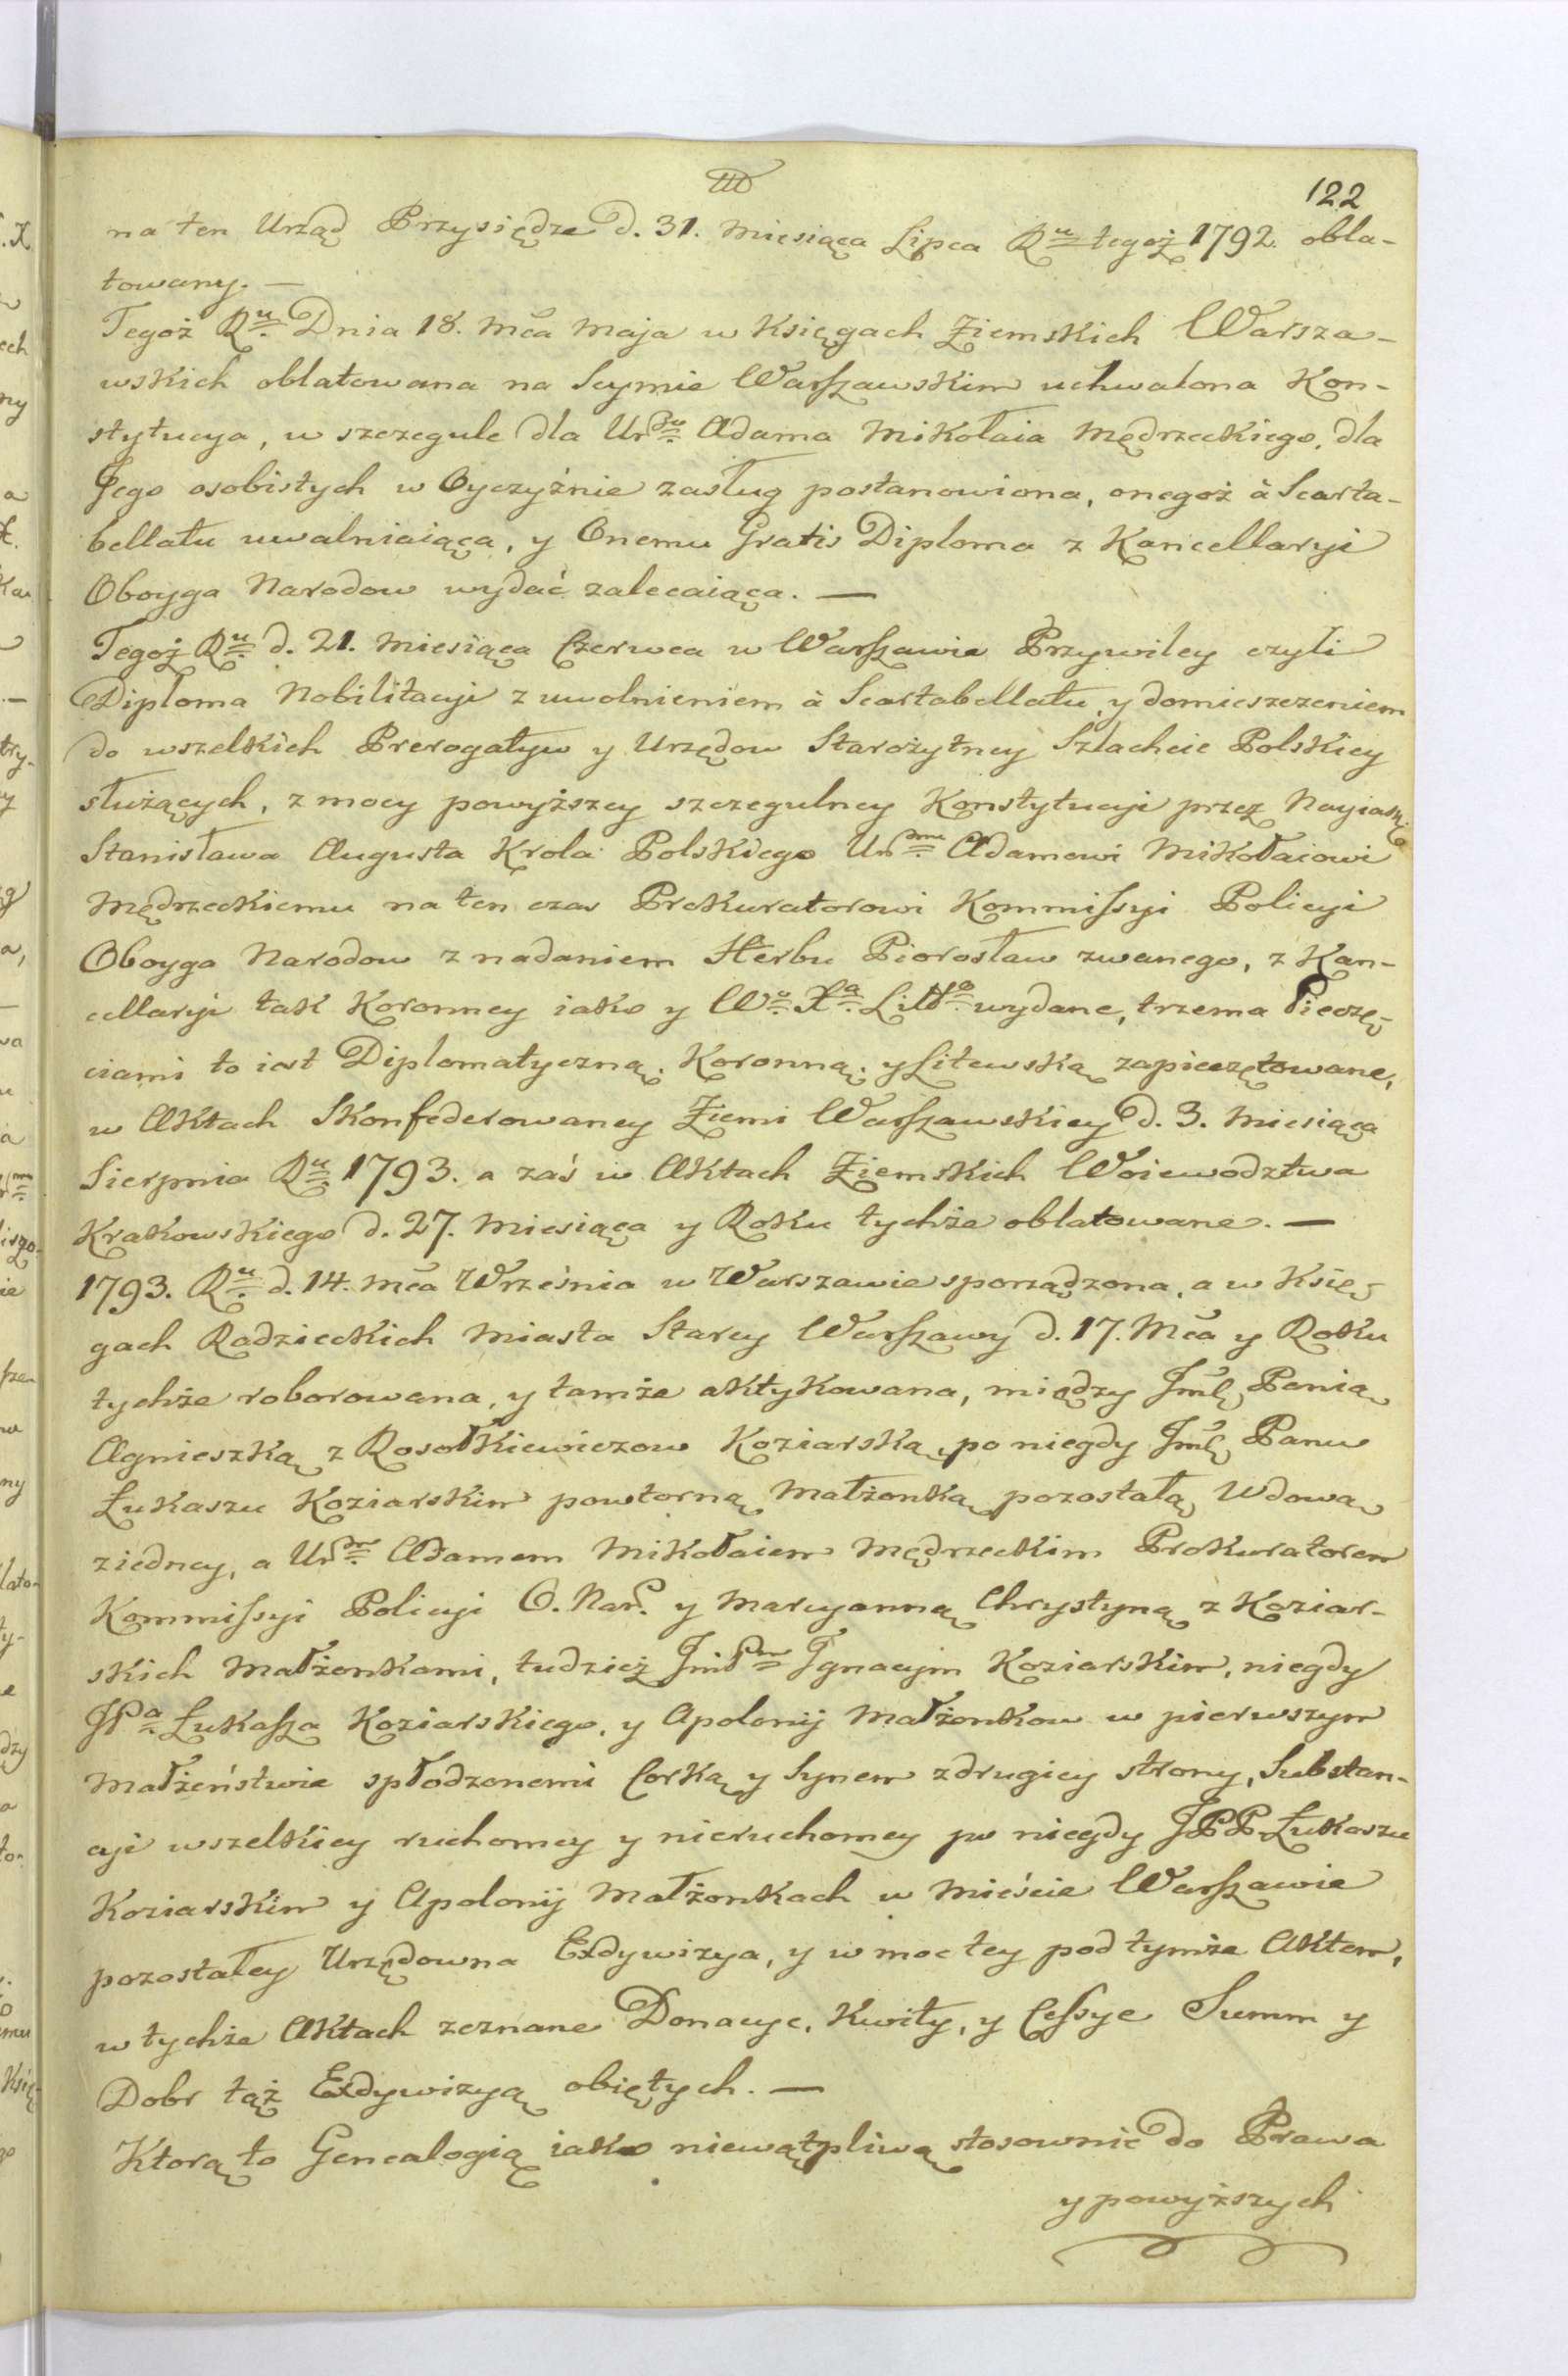 122
na ten Urząd Przysiędze d. 31. Miesiąca Lipca Ru tegoż 1792. obla-
towany. —
Tegoż Ru Dnia 18. Mca Maja w Księgach Ziemskich Warsza-
wskich oblatowana na Seymie Warszawskim uchwalona Kon-
stytucya, w szczegule dla Urdzu Adama Mikołaia Mędrzeckiego, dla
Jego osobistych w Oyczyźnie zasług postanowiona, onegoż à Scarta-
bellatu uwalniaiąca, y Onemu Gratis Diploma z Kancellaryi
Oboyga Narodow wydać zalecaiąca. —
Tegoż Ru d. 21. Miesiąca Czerwca w Warszawie Przywiley czyli
Diploma Nobilitacyi z uwolnieniem à Scartabellatu, y domieszczeniem
do wszelkich Prerogatyw y Urzędow Starożytney Szlachcie Polskiey
służących, z mocy powyższey szczegulney Konstytucyi przez Nayiaśgo
Stanisława Augusta Krola Polskiego Urdmu Adamowi Mikołaiowi
Mędrzeckiemu na ten czas Prokuratorowi Kommissyi Policyi
Oboyga Narodow z nadaniem Herbu Piorosław zwanego, z Kan-
cellaryi tak Koronney iako y Wo Xa Litto wydane, trzema Pieczę-
ciami to iest Diplomatyczną, Koronną, y Litewską zapieczętowane,
w Aktach Skonfederowaney Ziemi Warszawskiey d. 3. Miesiąca
Sierpnia Ru 1793. a zaś w Aktach Ziemskich Woiewodztwa
Krakowskiego d. 27. Miesiąca y Roku tychże oblatowane. —
1793. Ru d. 14. Mca Września w Warszawie sporządzona, a w Księ-
gach Radzieckich Miasta Starey Warszawy d. 17. Mca y Roku
tychże roborowana, y tamże aktykowana, między Jmć Panią
Agnieszką z Rosołkiewiczow Koziarską, po niegdy Jmć Panu
Łukaszu Koziarskim powtorną Małżonką pozostałą Wdową
ziedney, a Urm Adamem Mikołaiem Mędrzeckim Prokuratorem
Kommissyi Policyi O. Nar. y Marcyanną Chrystyną z Koziar-
skich Małżonkami, tudzież JmPm Jgnacym Koziarskim, niegdy
JPa Łukasza Koziarskiego, y Apolonij Małżonkow w pierwszym
Małżeństwie spłodzonemi Corką y Synem z drugiey strony, Substan-
cyi wszelkiey ruchomey y nieruchomey po niegdy JPP Łukaszu
Koziarskim y Apolonij Małżonkach w Mieście Warszawie
pozostałey Urzędowna Exdywizya, y w moc tey pod tymże Aktem,
w tychże Aktach zeznane Donacye, Kwity, y Cessye Summ y
Dobr tąż Exdywizyą obiętych. —
Ktorą to Genealogią iako niewątpliwą stosownie do Prawa
y powyższych